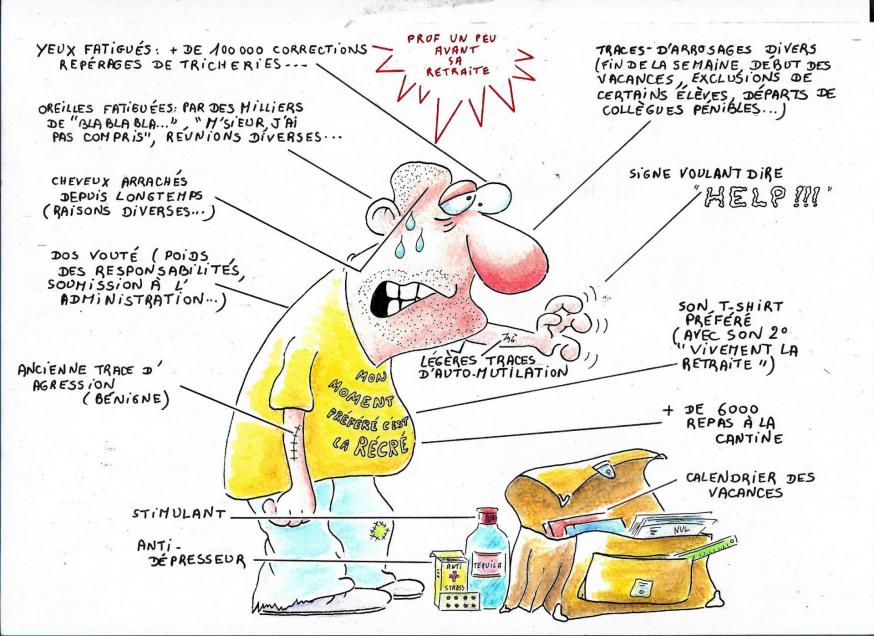 PROF UN PEU
AVANT
SA
RETRAITE
YEUX FATIGUÉS: + DE 100 000 CORRECTIONS
REPÉRAGES DE TRICHERIES...
OREILLES FATIGUÉES: PAR DES MILLIERS
DE "BLA BLA BLA...", "M'SIEUR, J'AI
PAS COMPRIS", REUNIONS DIVERSES...
CHEVEUX ARRACHÉS
DEPUIS LONGTEMPS
(RAISONS DIVERSES...)
DOS VOUTÉ (POIDS
DES RESPONSABILITÉS,
SOUMISSION À L'
ADMINISTRATION...)
ANCIENNE TRACE D'
AGRESSION
(BÉNIGNE)
STIMULANT
ANTI-
DÉPRESSEUR
TRACES D'ARROSAGES DIVERS
(FIN DE LA SEMAINE, DEBUT DES
VACANCES, EXCLUSIONS DE
CERTAINS ÉLÈVES, DÉPARTS DE
COLLÈGUES PÉNIBLES...)
SIGNE VOULANT DIRE
"HELP!!!"
SON T-SHIRT
PRÉFÉRÉ
(AVEC SON 2°
"VIVEMENT LA
RETRAITE")
LÉGÈRES TRACES
D'AUTO-MUTILATION
+ DE 6000
REPAS À LA
CANTINE
CALENDRIER DES
VACANCES
MON
MOMENT
PRÉFÉRÉ C'EST
LA RÉCRÉ
ANTI
STRESS
TEQUILA
NUL